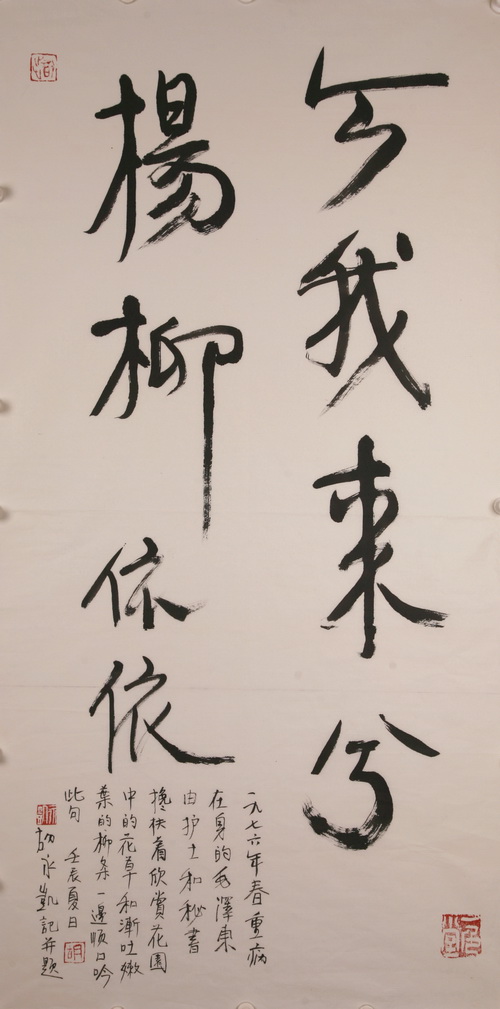 今我来兮
楊柳依依
一九七六年春重病
在身的毛澤東
由护士和秘書
搀扶着欣赏花園
中的花草和漸吐嫩
葉的柳条一邊顺口吟
此句 壬辰夏日
永凱記并題